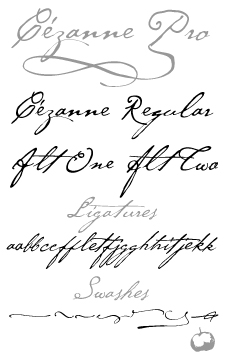 Cézanne Pro
Cézanne Regular
Alt One Alt Two
Ligatures
Swashes